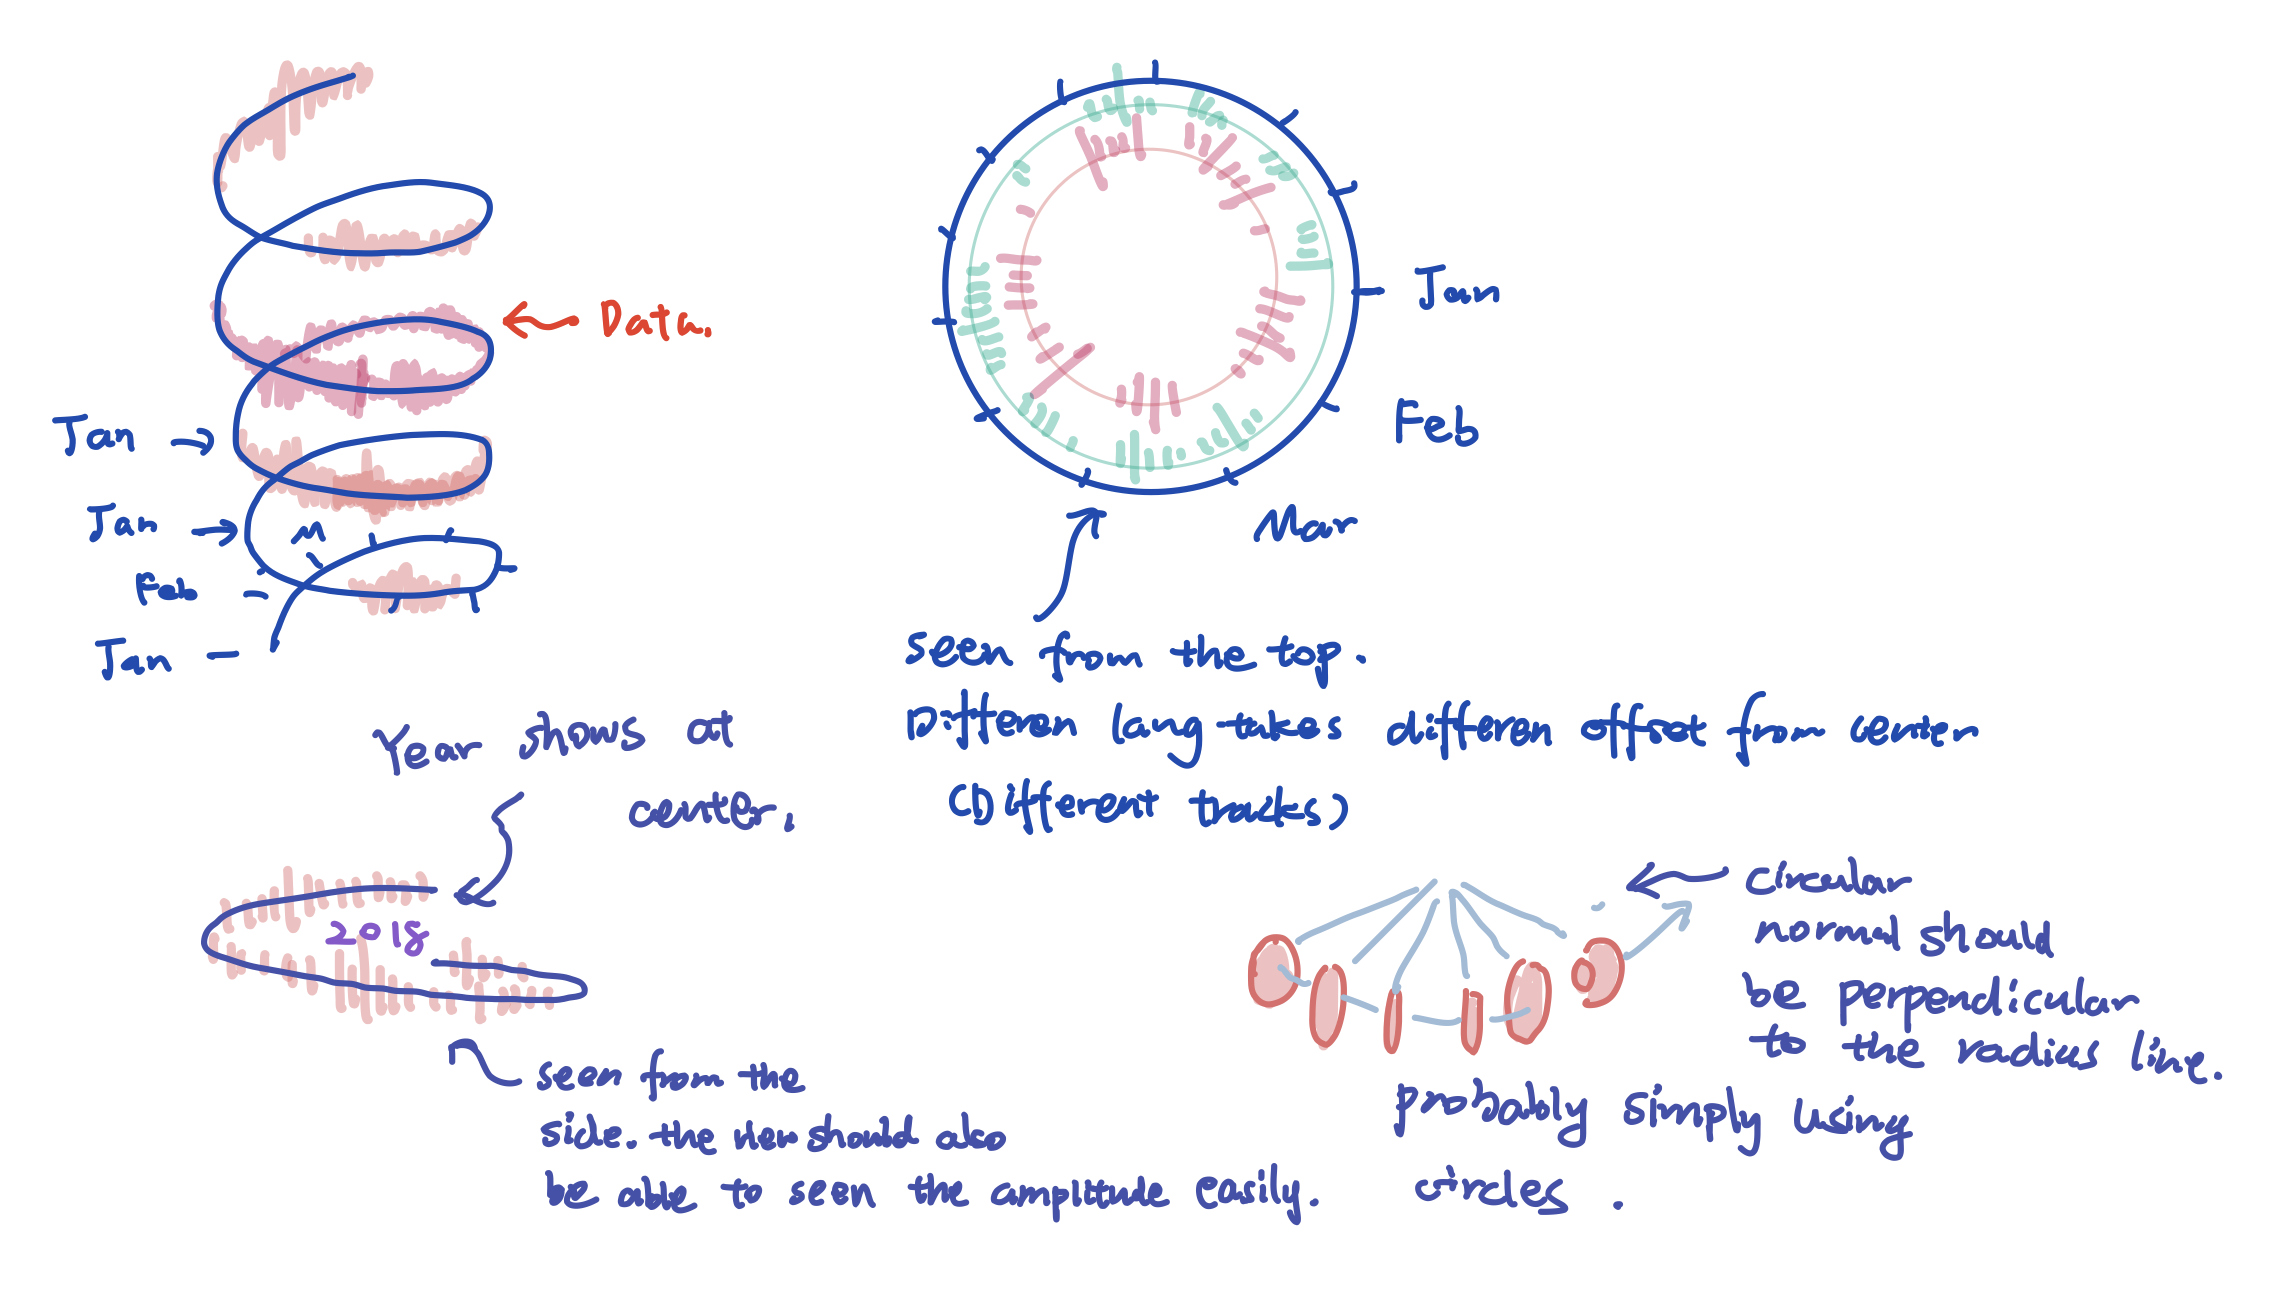 Data.
Jan
Jan
M
Feb
Jan
Jan
Feb
Mar
seen from the top.
Differen lang takes differen offset from center
(Different tracks)
Year shows at
center.
2018
seen from the
side. the view should also
be able to seen the amplitude easily.
circular
normal should
be perpendicular
to the radius line.
probably simply using
circles.